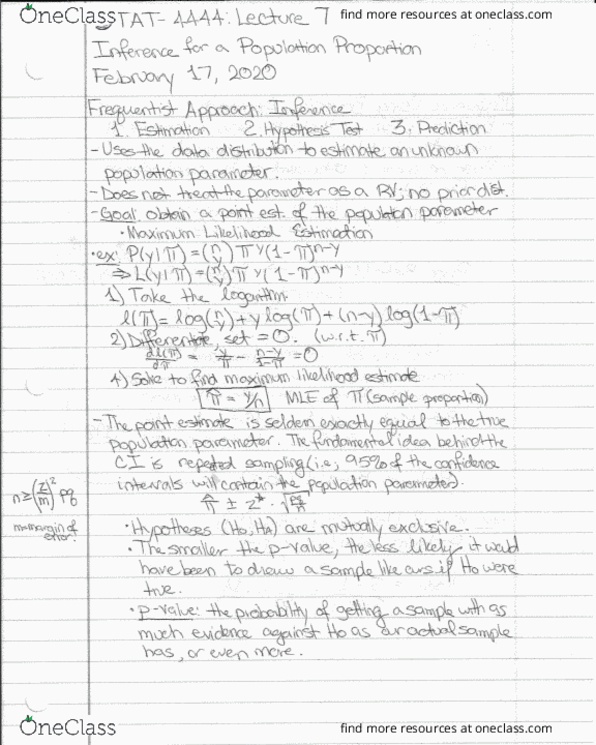 OneClass
find more resources at oneclass.com
STAT-4444: Lecture 7
Inference for a Population Proportion
February 17, 2020
Frequentist Approach: Inference
1. Estimation 2. Hypothesis Test 3. Prediction
- Uses the data distribution to estimate an unknown
population parameter.
- Does not treat the parameter as a RV; no prior dist.
- Goal: obtain a point est. of the population parameter
• Maximum Likelihood Estimation
• ex: P(y|π) = (n y) π^y (1-π)^n-y
⇒ L(y|π) = (n y) π^y (1-π)^n-y
1) Take the logarithm
l(π) = log(n y) + y log(π) + (n-y) log(1-π)
2) Differentiate, set = 0. (w.r.t. π)
dl(π)/dπ = y/π - n-y/1-π = 0
4) Solve to find maximum likelihood estimate
π̂ = y/n MLE of π (sample proportion)
- The point estimate is seldom exactly equal to the true
population parameter. The fundamental idea behind the
CI is repeated sampling (i.e., 95% of the confidence
intervals will contain the population parameter).
n ≥ (z/m)^2 pq
π̂ ± z* · √pq/n
m=margin of
error
• Hypotheses (H0, HA) are mutually exclusive.
• The smaller the p-value, the less likely it would
have been to draw a sample like ours if H0 were
true.
• p-value: the probability of getting a sample with as
much evidence against H0 as our actual sample
has, or even more.
OneClass
find more resources at oneclass.com